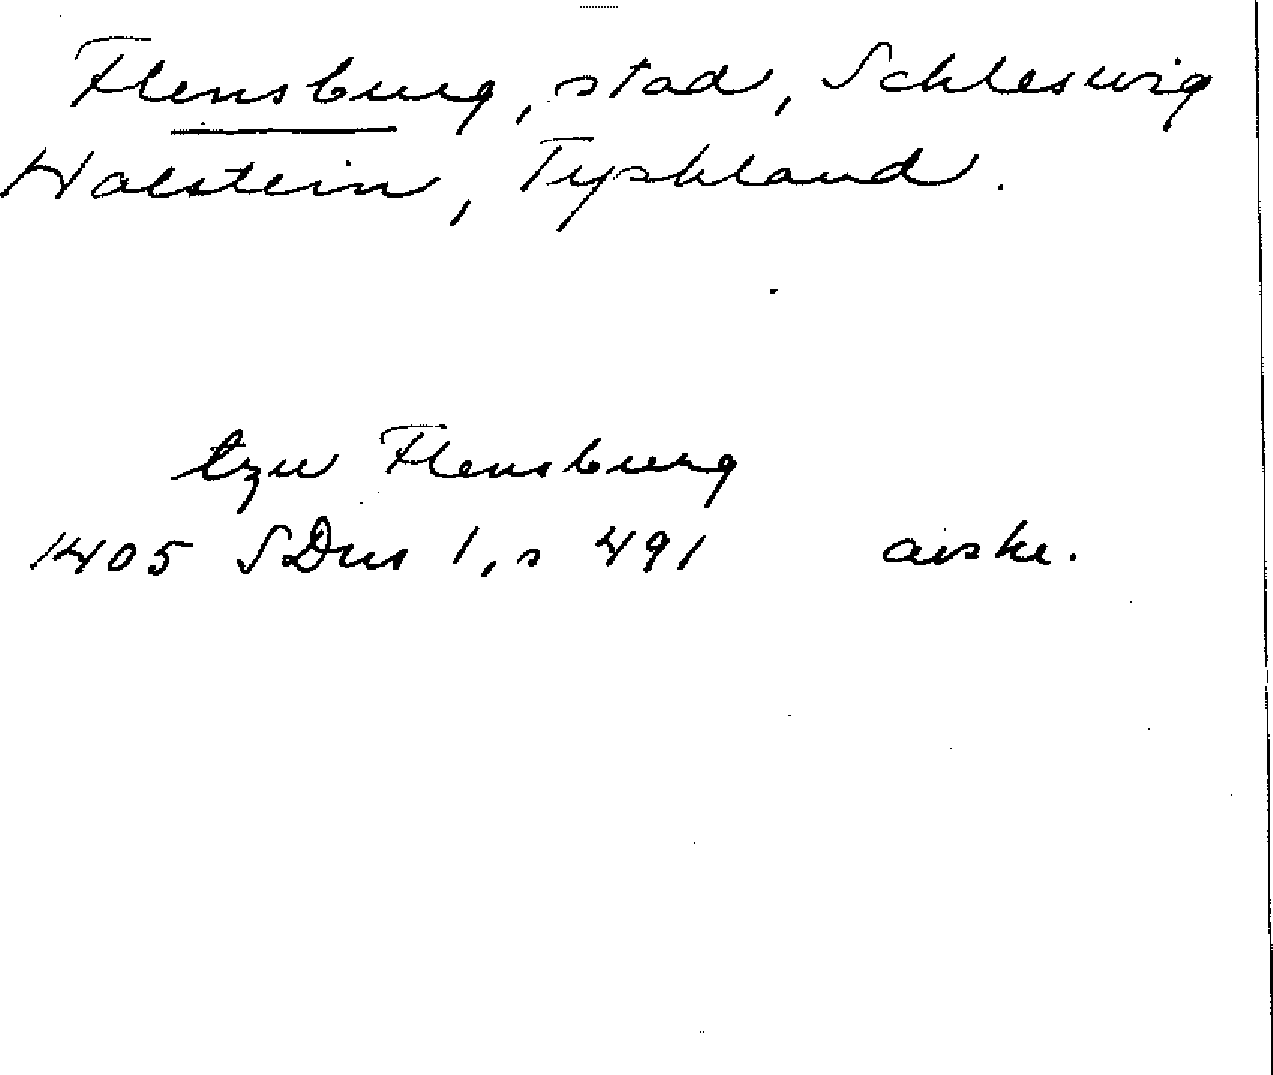 Flensburg, stad, Schleswig
Holstein, Tyskland.
tzu Flensburg
1405 SDns 1, s 491 avskr.